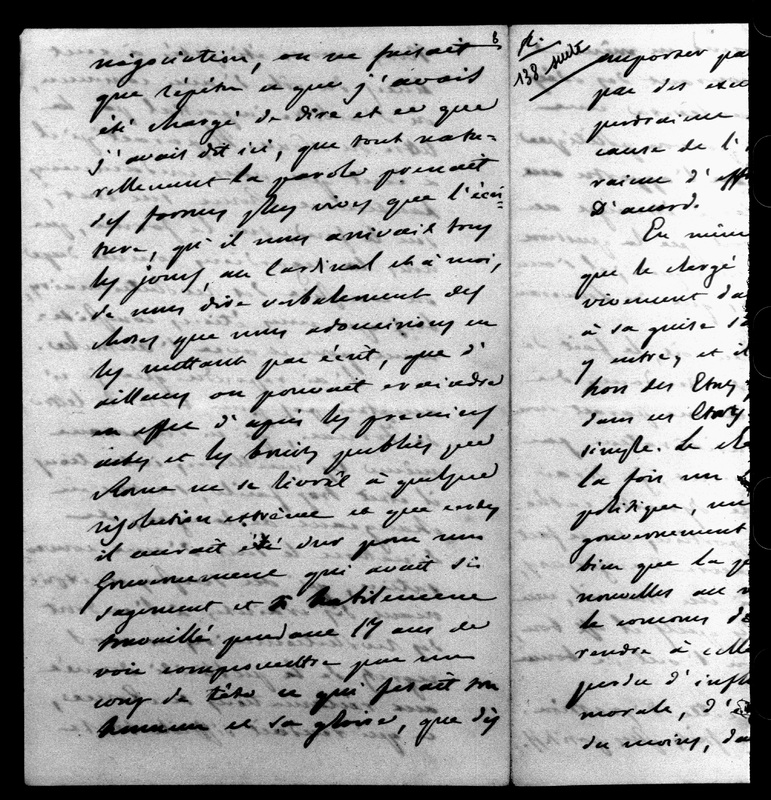 8
négociation, on ne faisait
que répéter ce que j'avais
été chargé de dire et ce que
j'avais dit ici, que tout natu=
rellement la parole prenait
des formes plus vives que l'écri=
ture, qu'il nous arrivait tous
les jours, au Cardinal et à moi,
de nous dire verbalement des
choses que nous adoucissions en
les mettant par écrit, que d'
ailleurs on pouvait craindre
en effet d'après les premiers
actes et les bruits publics que
Rome ne se livrât à quelque
résolution extrême et que certes
il aurait été dur pour un
Gouvernement qui avait si
sagement et si habilement
travaillé pendant 17 ans de
voir compromettre par un
coup de tête ce qui faisait son
honneur et sa gloire, que dis
R.
138 suite
importer pa
par des exc
perdraient
cause de l'
raient d'eff
D'accord.
En même
que le clergé
vivement da
à sa guise
y entre, et il
tion des Etats
dans ces Etats
simple. Le cle
la fois un
politique, un
gouvernement
bien que la
nouvelles au
le concours de
rendre à celle
perdu d'infl
morale, d'
du moins, da